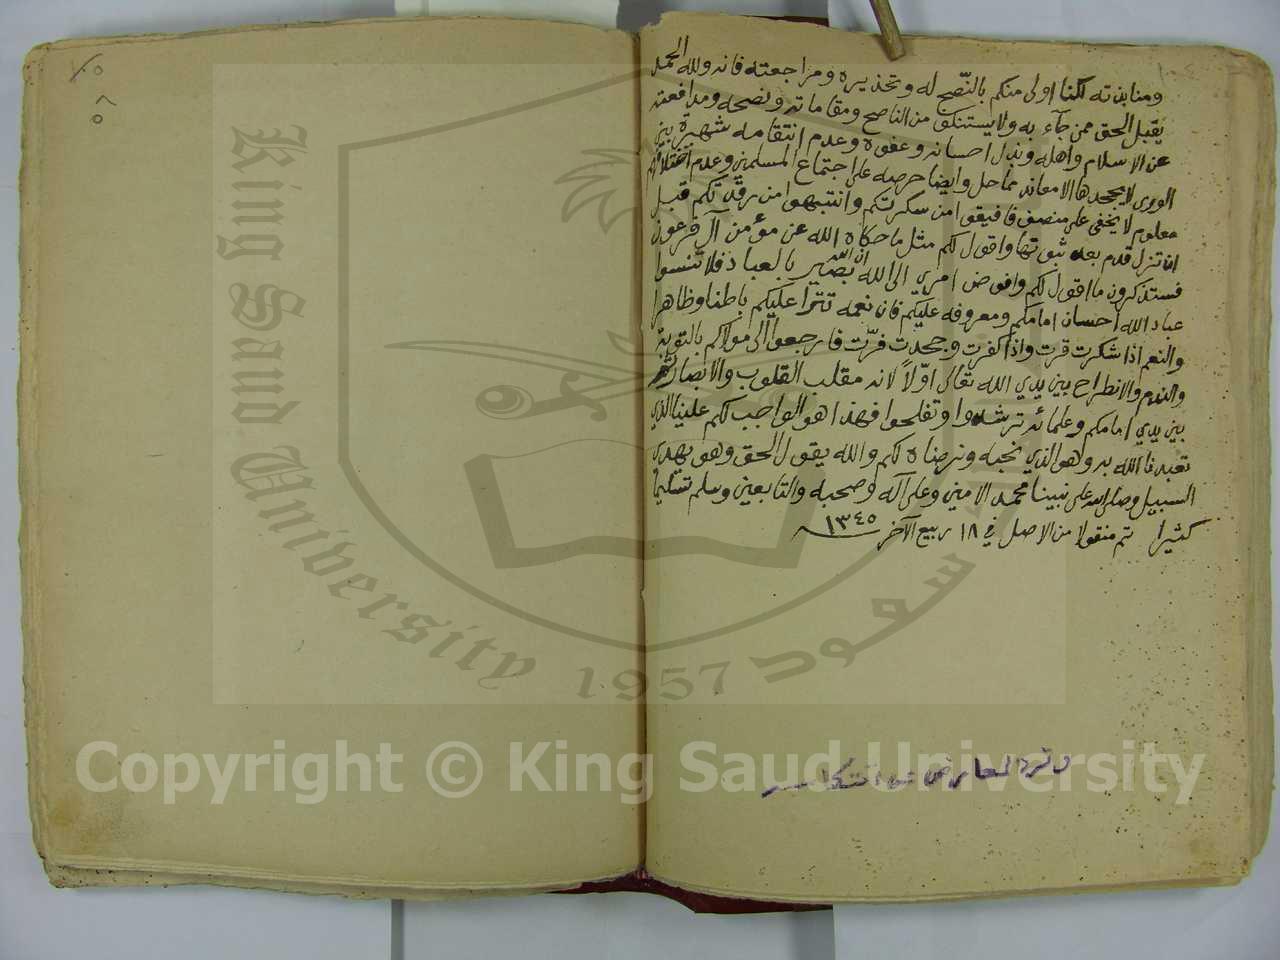 ومنابذته لكنا اولى منكم بالنصح له وتحذيره ومراجعته فانه ولله الحمد
يقبل الحق ممن جآء به ولا يستنكف من الناصح ومقاماته ونصحه ومدافعته
عن الاسلام واهله وبذل احسانه وعفوه وعدم انتقامه شهيرة بين
الورى لا يجحدها الا معاند مماحل وايضا حرصه على اجتماع المسلمين وعدم اختلافهم
معلوم لا يخفى على منصف فافيقوا من سكرتكم وانتبهوا من رقدتكم قبل
ان تزل قدم بعد ثبوتها واقول لكم مثل ما حكاه الله عن مؤمن آل فرعون
فستذكرون ما اقول لكم وافوض امري الى الله ان الله بصير بالعباد فلا تنسوا
عباد الله احسان امامكم ومعروفه عليكم فان نعمه تترا عليكم باطنا وظاهرا
والنعم اذا شكرت قرت واذا كفرت وجحدت فرّت فارجعوا الى مولاكم بالتوبة
والندم والانطراح بين يدي الله تعالى اوّلاً لانه مقلب القلوب والابصار ثم
بين يدي امامكم وعلمائه ترشدوا وتفلحوا فهذا هو الواجب لكم علينا الذي
تعبدنا الله به وهو الذي نحبه ونرضاه لكم والله يقول الحق وهو يهدي
السبيل وصلى الله على نبينا محمد الامين وعلى آله وصحبه والتابعين وسلم تسليما
كثيرا تم منقولا من الاصل في ١٨ ربيع الآخر ١٣٤٥
King Saud University
1957
سعود
Copyright © King Saud University